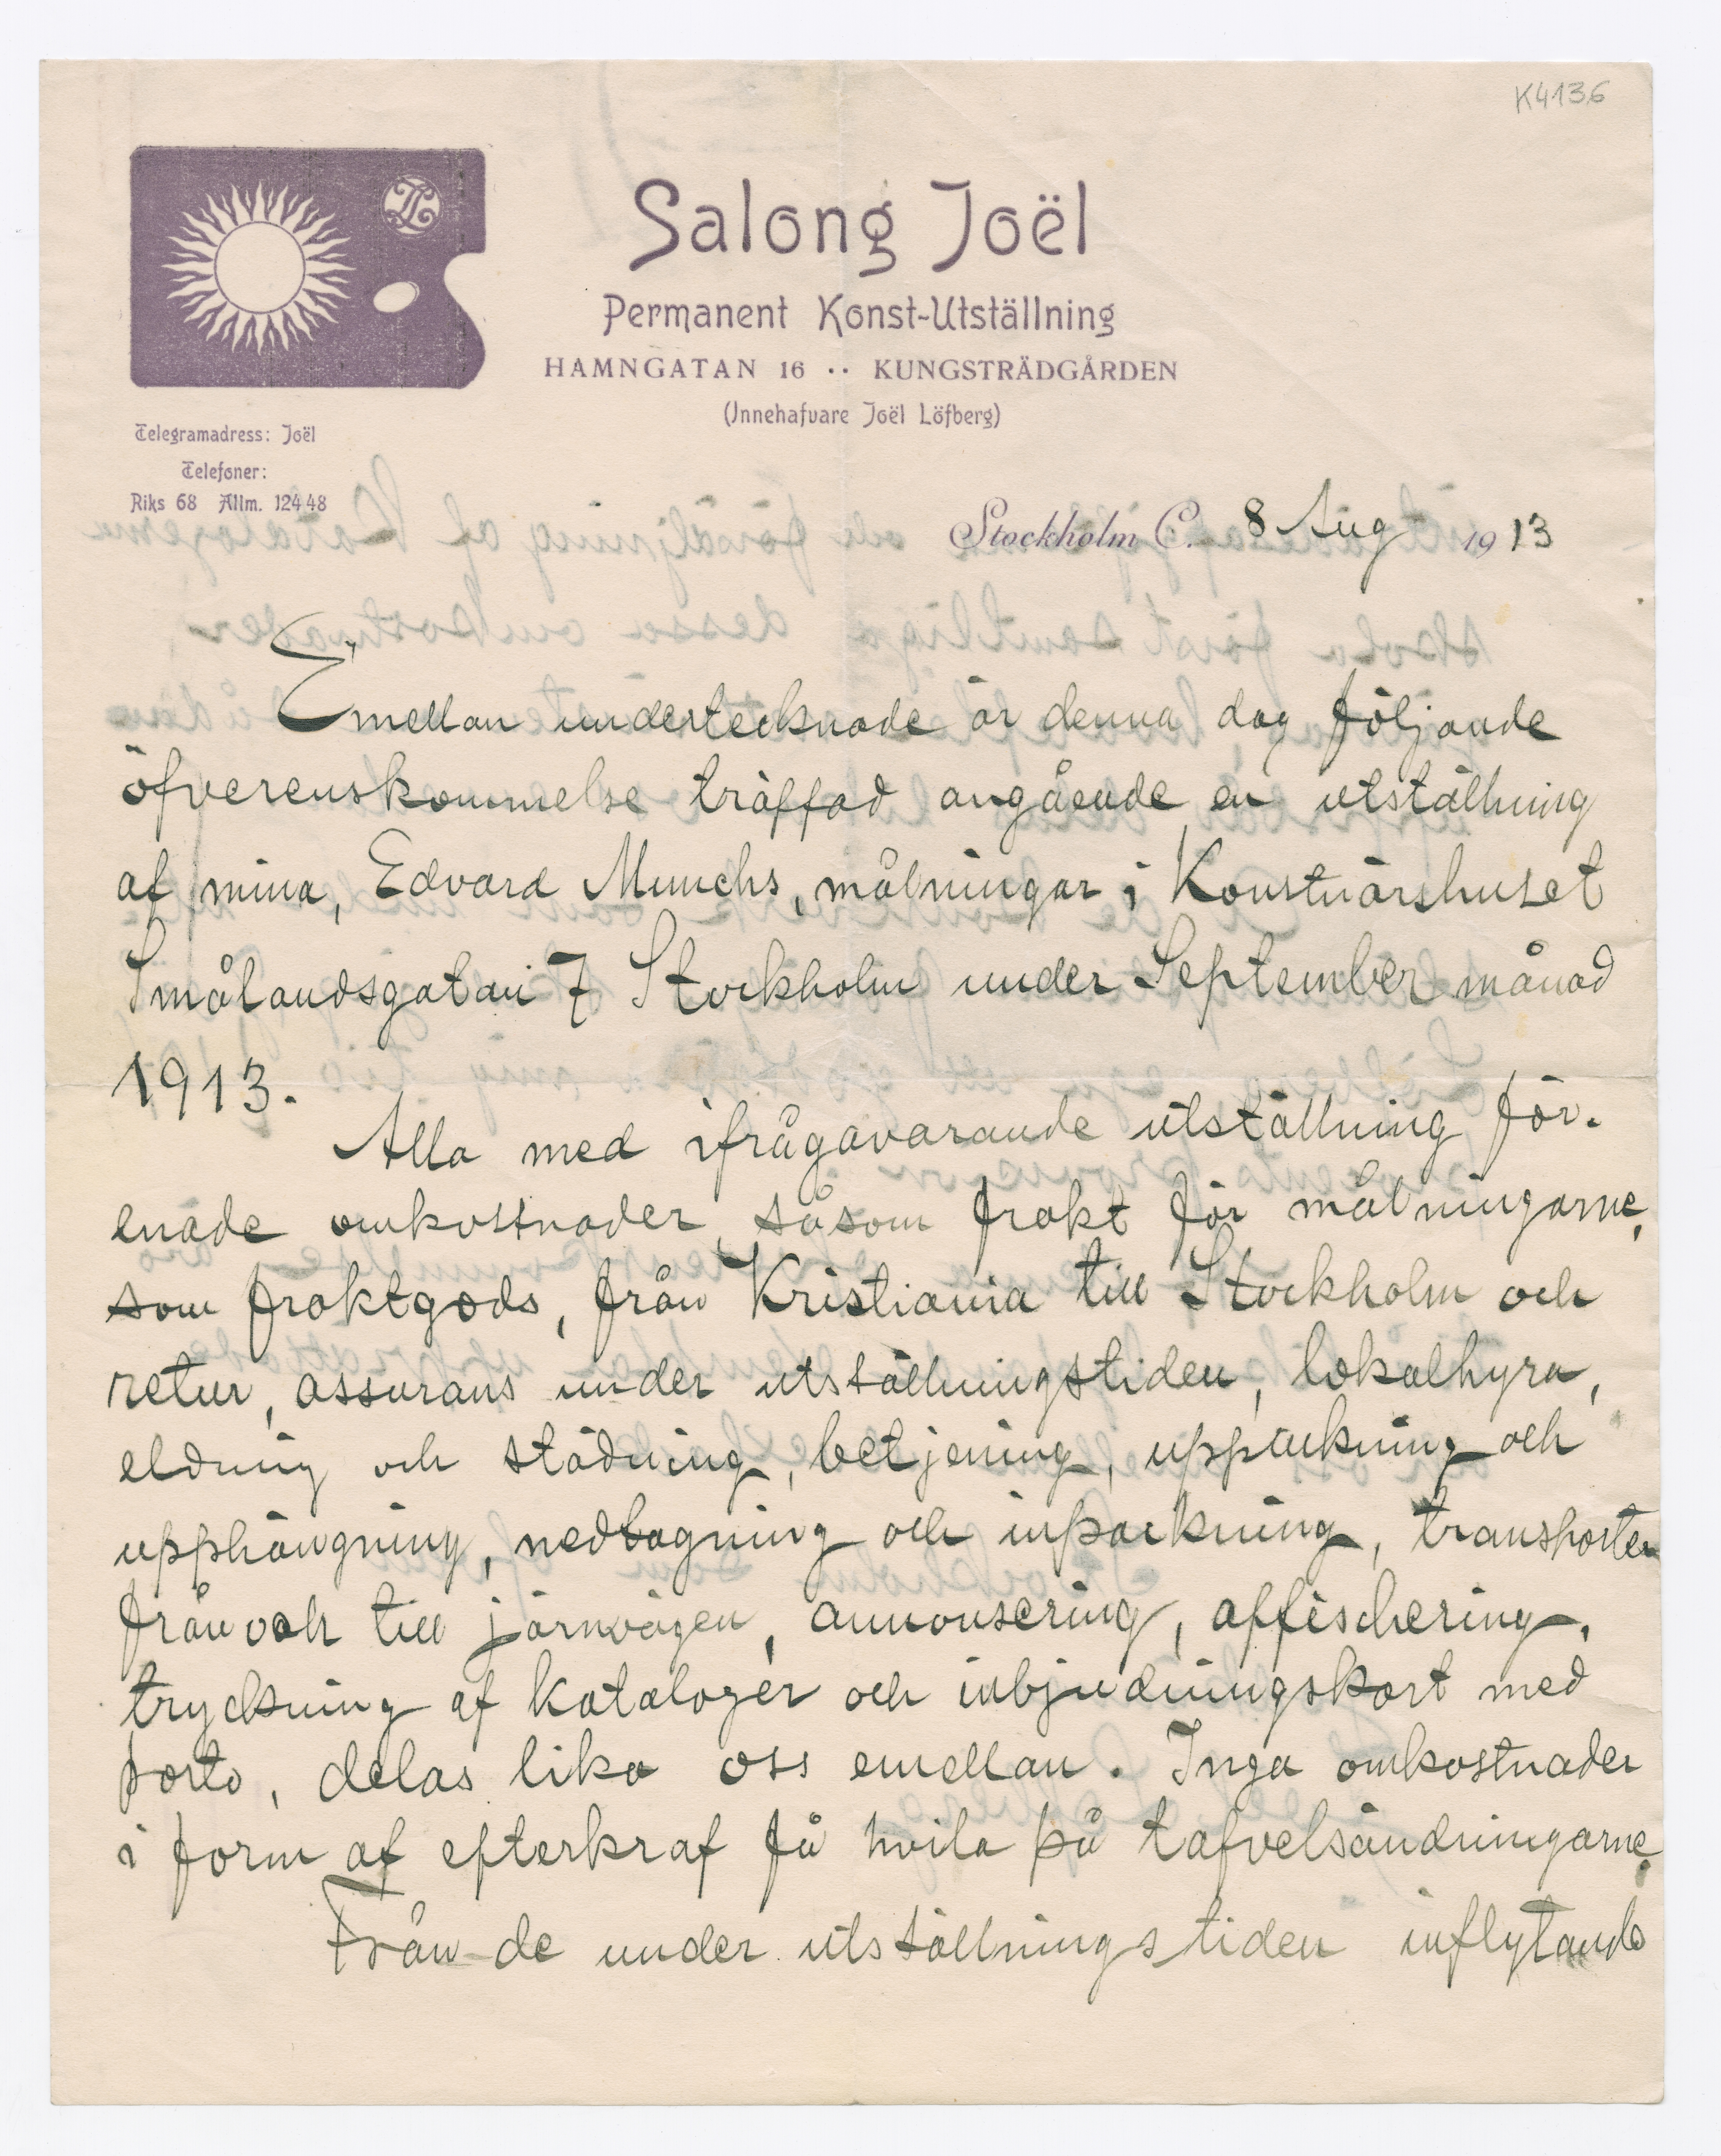 K4136
Salong Joël
Permanent Konst-Utställning
HAMNGATAN 16 ·· KUNGSTRÄDGÅRDEN
(Innehafvare Joël Löfberg)
Telegramadress: Joël
Telefoner:
Riks 68 Allm. 12448
Stockholm C. 8 Aug 1913
Emellan undertecknade är denna dag följande
öfverenskommelse träffad angående en utställning
af mina, Edvard Munchs, målningar i Konstnärshuset
Smålandsgatan 7 Stockholm under September månad
1913.
Alla med ifrågavarande utställning för-
enade omkostnader såsom frakt för målningarne,
som fraktgods, från Kristiania till Stockholm och
retur, assurans under utställningstiden, lokalhyra,
eldning och städning, betjening, uppackning och
upphängning, nedtagning och inpackning, transporter
från och till järnvägen, annonsering, affischering,
tryckning af kataloger och inbjudningskort med
porto, delas lika oss emellan. Inga omkostnader
i form af efterkraf få hvila på tafvelsändningarne.
Från de under utställningstiden inflytande